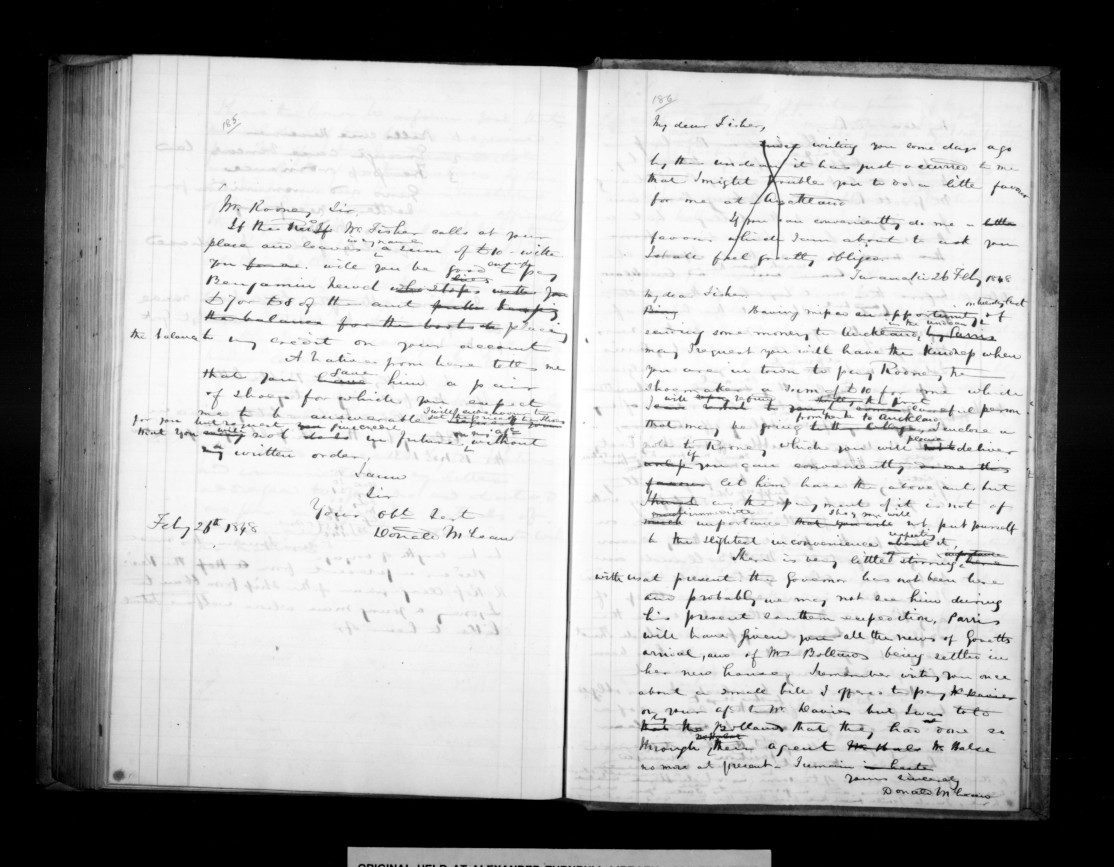 185
Mr Rodney, Sir,
If the Mr Fisher calls at your
place and leaves in my name a sum of £10 - with
you will you be good enough to pay
Benjamin Newel who stops with you
£7 or £8 of the amt placing
the balance to my credit on your account
A native from here tells me
that you gave him a pair
of shoes for which you expect
me to be answerable
for you but request
that you will not do so in future without
my written order.
I am
Sir
Your obt Sert
Donald McLean
Feby 26th 1848
186
My dear Fisher,
Since writing you some days ago
by the it has just occurred to me
that I might trouble you to do a little favour
for me at Auckland
If you can conveniently do me a little
favour which I am about to ask you
I shall feel greatly obliged
Taranaki 26 Feby 1848
My dear Fisher
Being Having missed an opportunity of
sending some money to Auckland, by Parris
may I request you will have the kindness when
you are in town to pay Rodney the
Shoemaker a sum of £10 for me which
I will careful person
that may be going to Auckland. I enclose a
note to Rodney which you will please deliver
unless you can conveniently
favour let him have the above amt. but
as the payment of it is not of
much immediate
much importance that you will not put yourself
to the slightest inconvenience about it,
There is very little stirring here
with us at present the Governor has not been here
and probably we may not see him during
his present southern expedition, Parris
will have given you all the news of Gosetts
arrival, and of Mrs Bollands being settled in
her new house, I remember writing you once
about a small bill I offered to pay Mr Davies
on your acct to Mr Davies but I was told
that the Bollands that they had done so
through their agent Mr Halse Mr Halse
no more at present I remain in haste
yours sincerely
Donald McLean
ORIGINAL HELD AT ALEXANDER TURNBULL LIBRARY